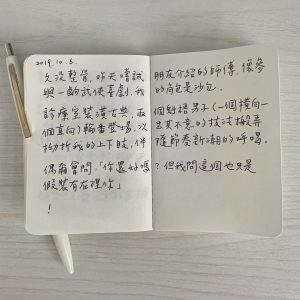 2019.10.3.
久沒整骨,昨天嘗試朋友介紹的師傅,像參
與一齣武俠喜劇,我的角色是沙包。
診療室裝潢古典,兩個魁梧男子(一個橫向一
個直向)輪番登場,以出其不意的技法搬弄
拗折我的上下肢,伴隨節奏新潮的呼喝。
偶爾會問:「你還好嗎?但我問這個也只是
假裝有在理你」
!